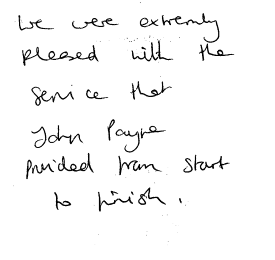 We were extremly
pleased with the
service that
John Payne
Provided from start
to finish.